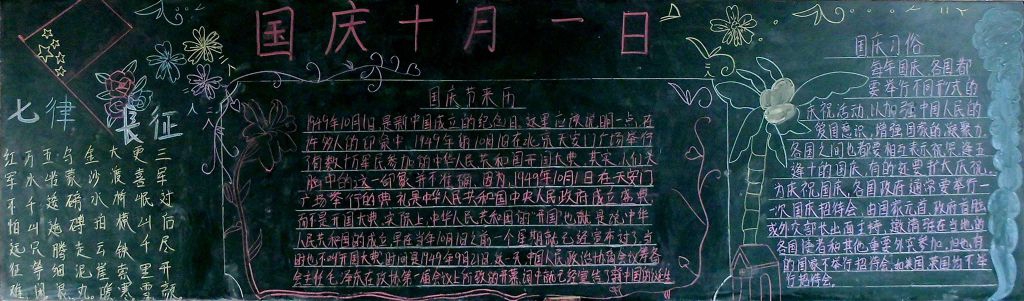 国庆十月一日
七律 长征
红军不怕远征难
万水千山只等闲
五岭逶迤腾细浪
乌蒙磅礴走泥丸
金沙水拍云崖暖
大渡桥横铁索寒
更喜岷山千里雪
三军过后尽开颜
国庆节来历
1949年10月1日是新中国成立的纪念日。这里应该说明一点,在
许多人的印象中,1949年的10月1日在北京天安门广场举行
有数十万军民参加的中华人民共和国开国大典。其实,人们头
脑中的这一印象并不准确。因为,1949年10月1日在天安门
广场举行的典礼是中华人民共和国中央人民政府成立盛典
而不是开国大典。实际上,中华人民共和国的"开国"也就是说,中华
人民共和国的成立,早在当年10月1日之前一个星期就已经宣布过了。当
时也不叫开国大典,时间是1949年9月21日。这一天中国人民政治协商会议筹备
会主任毛泽东在政协第一届会议上所致的开幕词中就已经宣告了新中国的诞生
国庆习俗
每年国庆,各国都
要举行不同形式的
庆祝活动,以加强中国人民的
爱国意识,增强国家的凝聚力。
各国之间也都要相互表示祝贺。逢五
逢十的国庆,有的还要扩大庆祝
为庆祝国庆,各国政府通常要举行一
次国庆招待会,由国家元首、政府首脑
或外交部长出面主持,邀请驻在当地的
各国使者和其他重要外宾参加。但也有
的国家不举行招待会,如美国、英国均不举
行招待会。